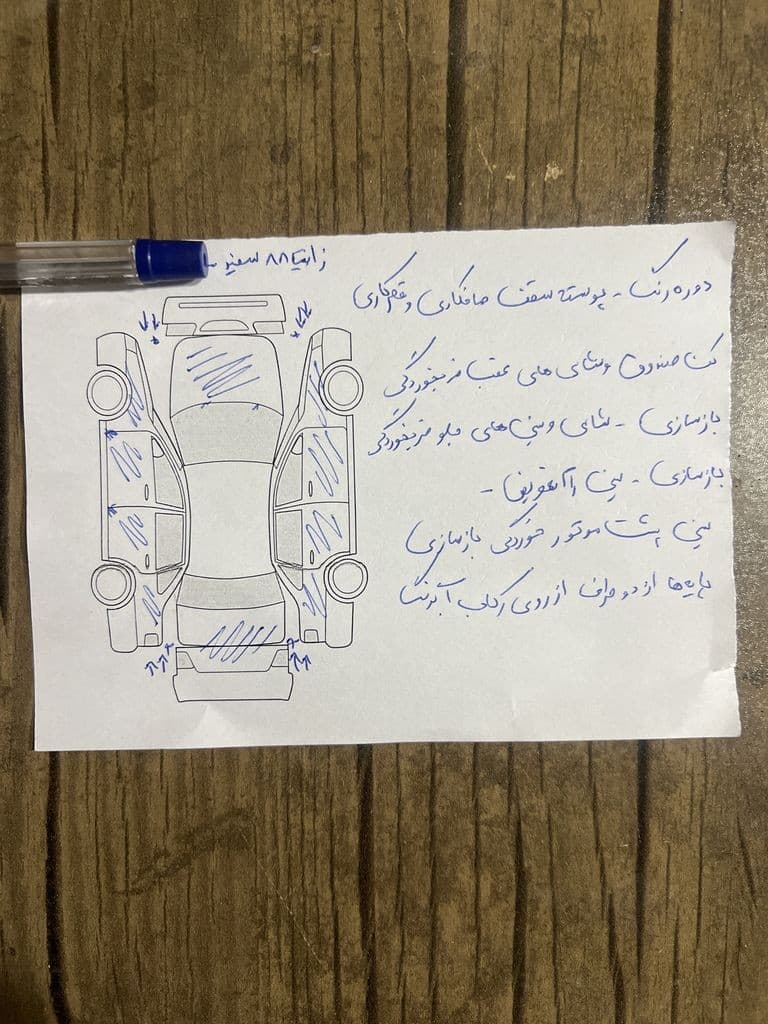 زانتیا ۸۸ سفید
دوره رنگ - پوسته سقف صافکاری و
کف صندوق و شاسی های عقب ضربخوردگی
بازسازی - شاسی و سینی های جلو ضربخوردگی
بازسازی - سینی را تعویض -
سینی پشت موتور خوردگی بازسازی
پایه ها از دو طرف از روی رکاب آبرنگ